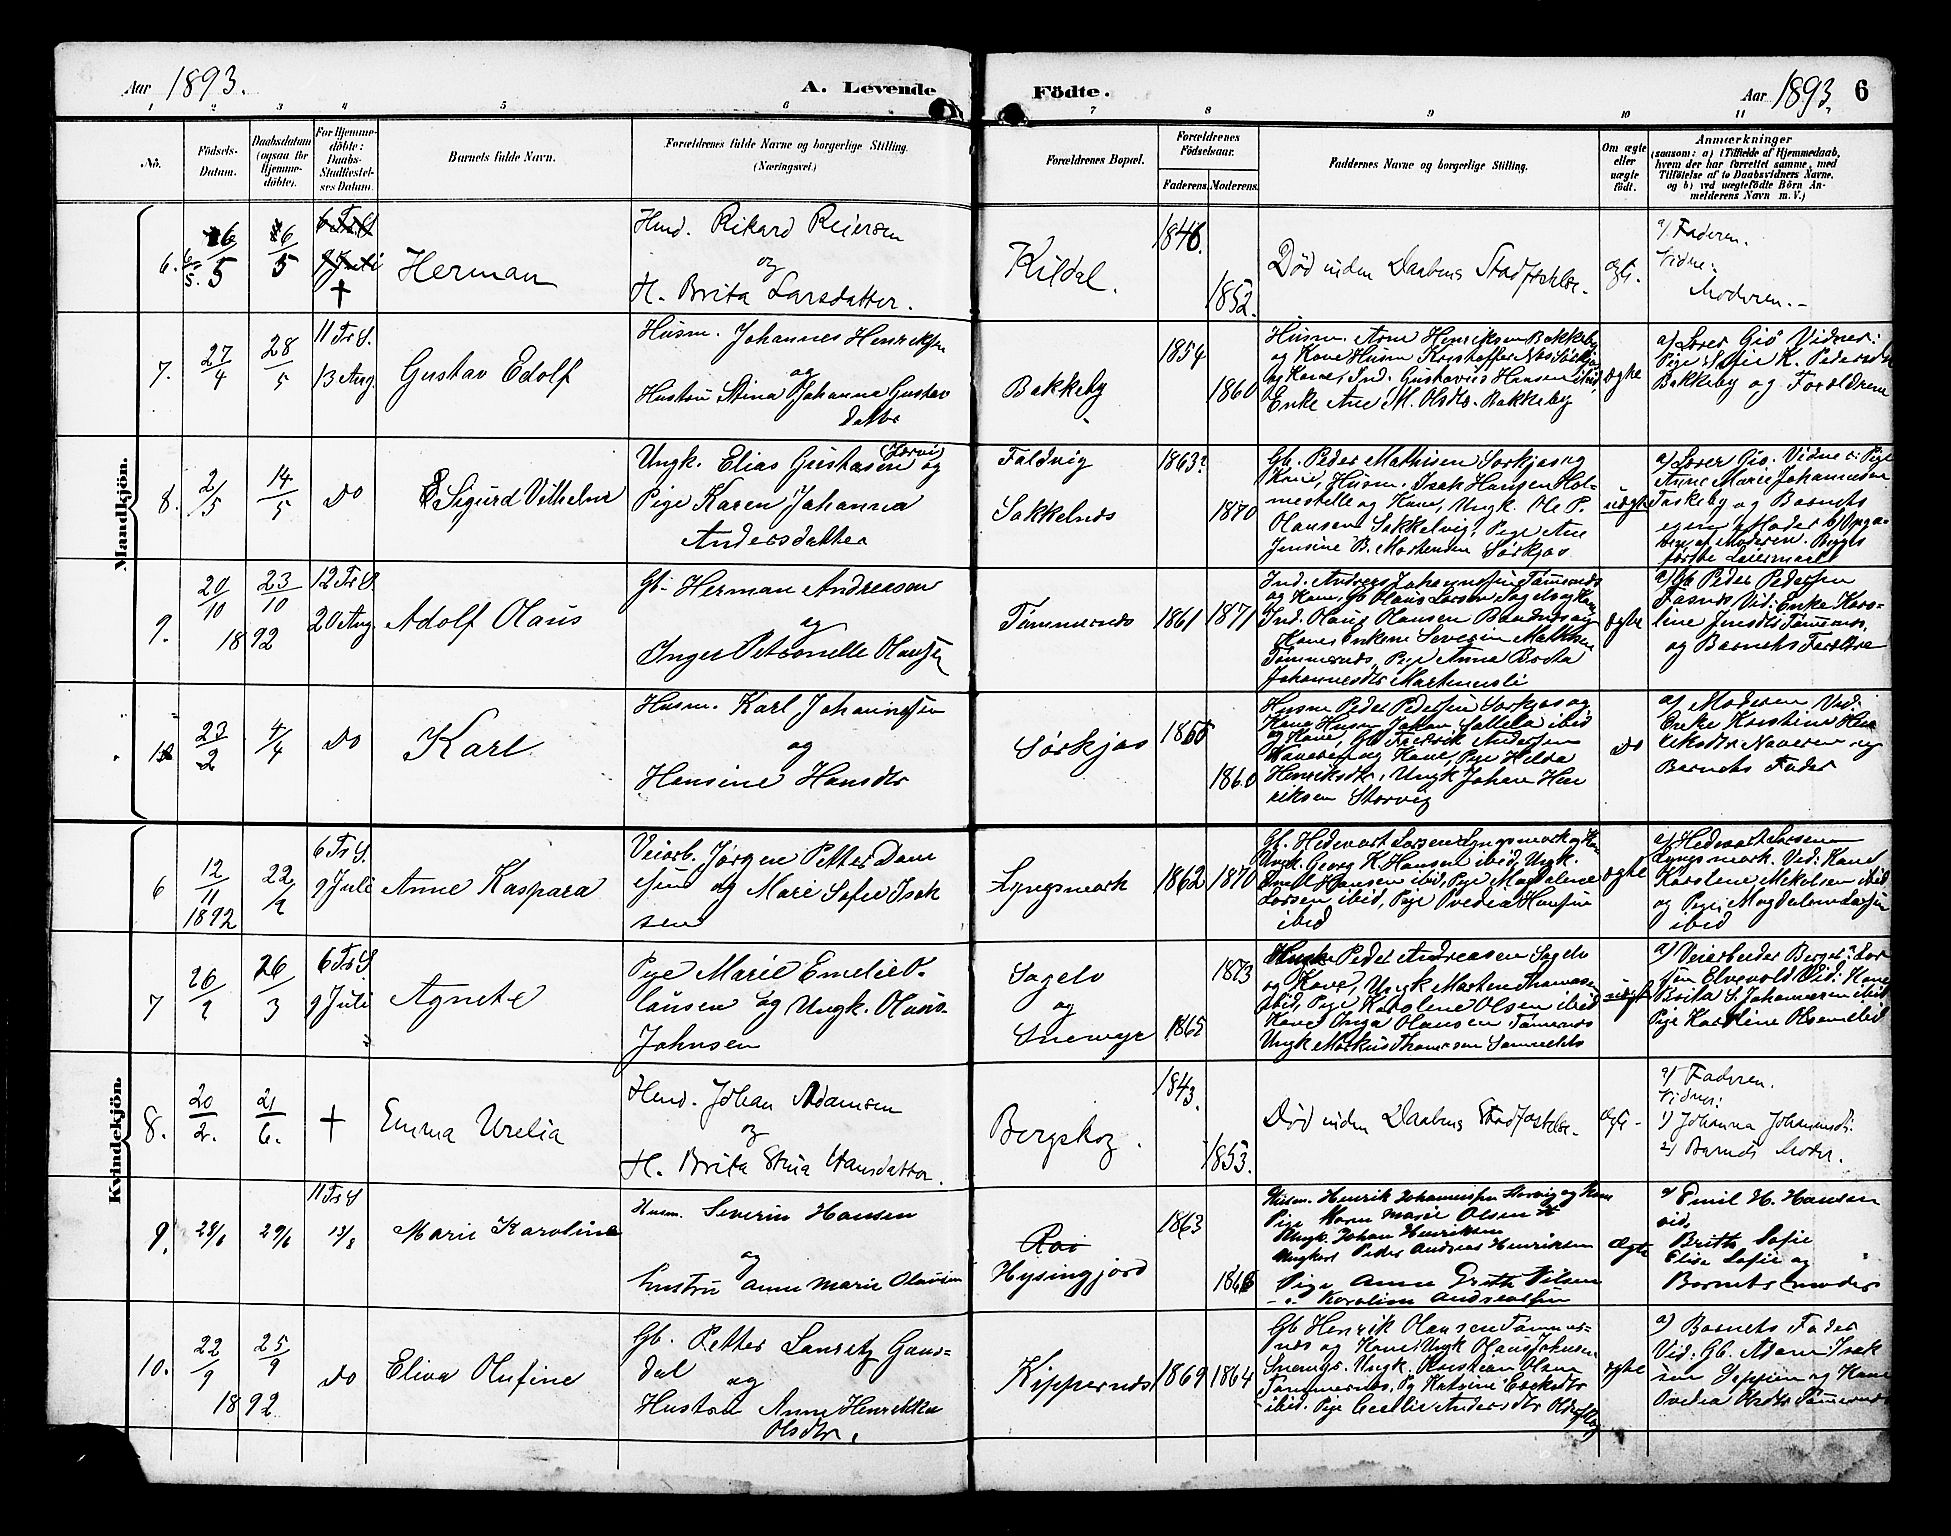 Aar 1893.
A. Levende
Födte.
Aar 1893.
6
1 2 3 4 5 6 7 8 9 10 11
No.
Födsels-
Datum.
Daabsdatum
(ogsaa for
Hjemme-
döbte).
For Hjemme-
döbte:
Daabs-
Stadfæstel-
ses Datum.
Barnets fulde Navn.
Forældrenes fulde Navne og borgerlige Stilling.
(Næringsvei.)
Forældrenes Bopæl.
Forældrenes
Födselsaar.
Faderens.
Moderens.
Faddernes Navne og borgerlige Stilling.
Om ægte
eller
uægte
födt.
Anmærkninger
(saasom: a) i Tilfælde af Hjemmedaab,
hvem der har forrettet samme, med
Tilføielse af to Daabsvidners Navne,
og b) ved uægtefødte Børn An-
melderens Navn m. V.)
Mandkjön.
6.
6/5
6/5
†
Herman
Hmd. Rikard Reiersen
og
H. Brita Larsdatter.
Kildal.
1846.
1852.
Död inden Daabens Stadfæstelse.
ægte.
a) Faderen.
Vidne:
Moderen.
7.
27/4
28/5
11 Tr S.
13 Aug.
Gustav Edolf
Husm. Johannes Henriksen
og
Hustru Stina Johanna Gustav
datter
Bakkeby
1854
1860
Husm. Arne Henriksen Bakkeby
og Kone, Ind. Gustavus Hansen ibid,
Enke Ane M. Olsdtr. Bakkeby
ægte
a) Lærer Giö Vidner:
Pige Sofie K. Pedersdtr
Bakkeby og Forældrene
8.
2/5
14/5
do
Sigurd Vilhelm
Ungk. Elias Gustavsen og
Pige Karen Johanna
Andersdatter
Faldvig
Sakkelnæs
1863?
1870
Gb. Peder Mathisen Sørkjos og
Kone, Husm. Isak Hansen Hol-
mestelle og Kone, Ungk. Ole P.
Olausen Sakkelvig, Pige Ane
Jensine B. Mortensen Sørkjos
uægte
a) Lærer Giö. Vidner: Pige
Anne Marie Johannesdtr
og Barnets
egen Moder b) Opga-
ven af Moderen. Begges
første Leiermaal
9.
20/10
1892
23/10
12 Tr S.
20 Aug.
Adolf Olaus
Gb. Herman Andreasen
og
Inger Petronelle Olausen
Tømmernæs
1861
1871
Ind. Andreas Johannessen Tømernæs
og Kone, Gb. Olaus Larsen Sagelv og Kone
Ind. Olaus Olausen
Kone, Enkene Severin Mathisen
Tømmernæs, Pige Anna Brita
Johannesdtr
ægte
a) Gb Peder Pedersen
Vid: Enke Karo-
line Jensdtr Tømernæs,
og Barnets Forældre
10
23/2
4/4
do
Karl
Husm. Karl Johannessen
og
Hansine Hansdtr
Sørkjos
1865
1860
Husm Peder Pedersen Sørkjos og
Kone, Husm Johan Sallela ibid
og Kone, Gb Fredrik Andersen
og Kone, Pige Helda
Henriksdtr, Ungk Johan Hen
riksen Storvig
do
a) Moderen Vid:
Enke Kirstine Hen
riksdtr og
Barnets Fader
Kvindekjön.
6
12/11
1892
22/2
6 Tr S.
9 Juli
Anne Kaspara
Veiarb. Jørgen Petter Dani
elsen og Mari Sofie Isak
sen
Lyngsmark
1862
1870
Gb. Hedevart Larsen Lyngsmark og Kone
Ungk. Georg K. Hansen ibid, Ungk.
Emil Hansen ibid, Pige Magdalene
Larsen ibid, Pige Ovedia Hansen
ibid
ægte
a) Hedevart Larsen
Lyngsmark. Vid: Kone
Karolene Mikelsen ibid
og Pige Magdalena Larsen
ibid
7
26/2
26/3
6 Tr S
9 Juli
Agnete
Pige Marie Emelie K-
lausen og Ungk. Olaus
Johnsen
Sagelv
og
Snemyr
1873
1865
Peder Andreasen Sagelv
og Kone, Ungk Morten Thomasen
ibid, Pige Karolene Olsen ibid
Kone Inga Olausen Tømernæs
Ungk Markus Thomesen
uægte
a) Veiarbeider Berger Lar
sen Elvevold Vid: Kone
Brita S. Johannesen ibid
Pige Karoline Olsen ibid
8.
20/2.
21/6.
†
Emma Urelia
Hmd. Johan Adamsen
og
H. Brita Stina Hansdatter.
Bergskog.
1843.
1853.
Död inden Daabens Stadfæstelse.
ægte
a) Faderen.
Vidner:
1) Johanna Johannesdtr.
2) Barnets Moder.
9.
28/6
29/6
11 Tr S
13/8
Marie Karoline
Husm. Severin Hansen
og
hustru Anne Marie Olausen
Hysingjord
1863
1866
Husm. Henrik Johannessen Storvig og Kone
Pige Karen Marie Olsen
Ungk. Johan Henriksen
Ungkarl Peder Andreas Henriksen
Pige Anne Grethe Nilsen
" Karoline Andreassen
Ægte
a) Emil H. Hansen
Vid.
Brith Sofie
Elisa Sofie og
Barnets moder
10.
22/9
1892
25/9
do
Eliva Olufine
Gb. Petter Lauritz Gaus-
dal og
Hustru Anne Henrikka
Olsdtr.
Kippernæs
1869
1864
Gb Henrik Olausen Tømmer-
næs og Kone, Ungk Olaus Johnsen
Snemyr. Ungk. Kristian Olsen
Tømmernes, Pg Katrine
ibid. Pige Cecilie Andersdtr
ægte
a) Barnets Fader
Vid: Gb. Adam Isak
sen og Kone
Ovedia Olsdtr Tømernæs